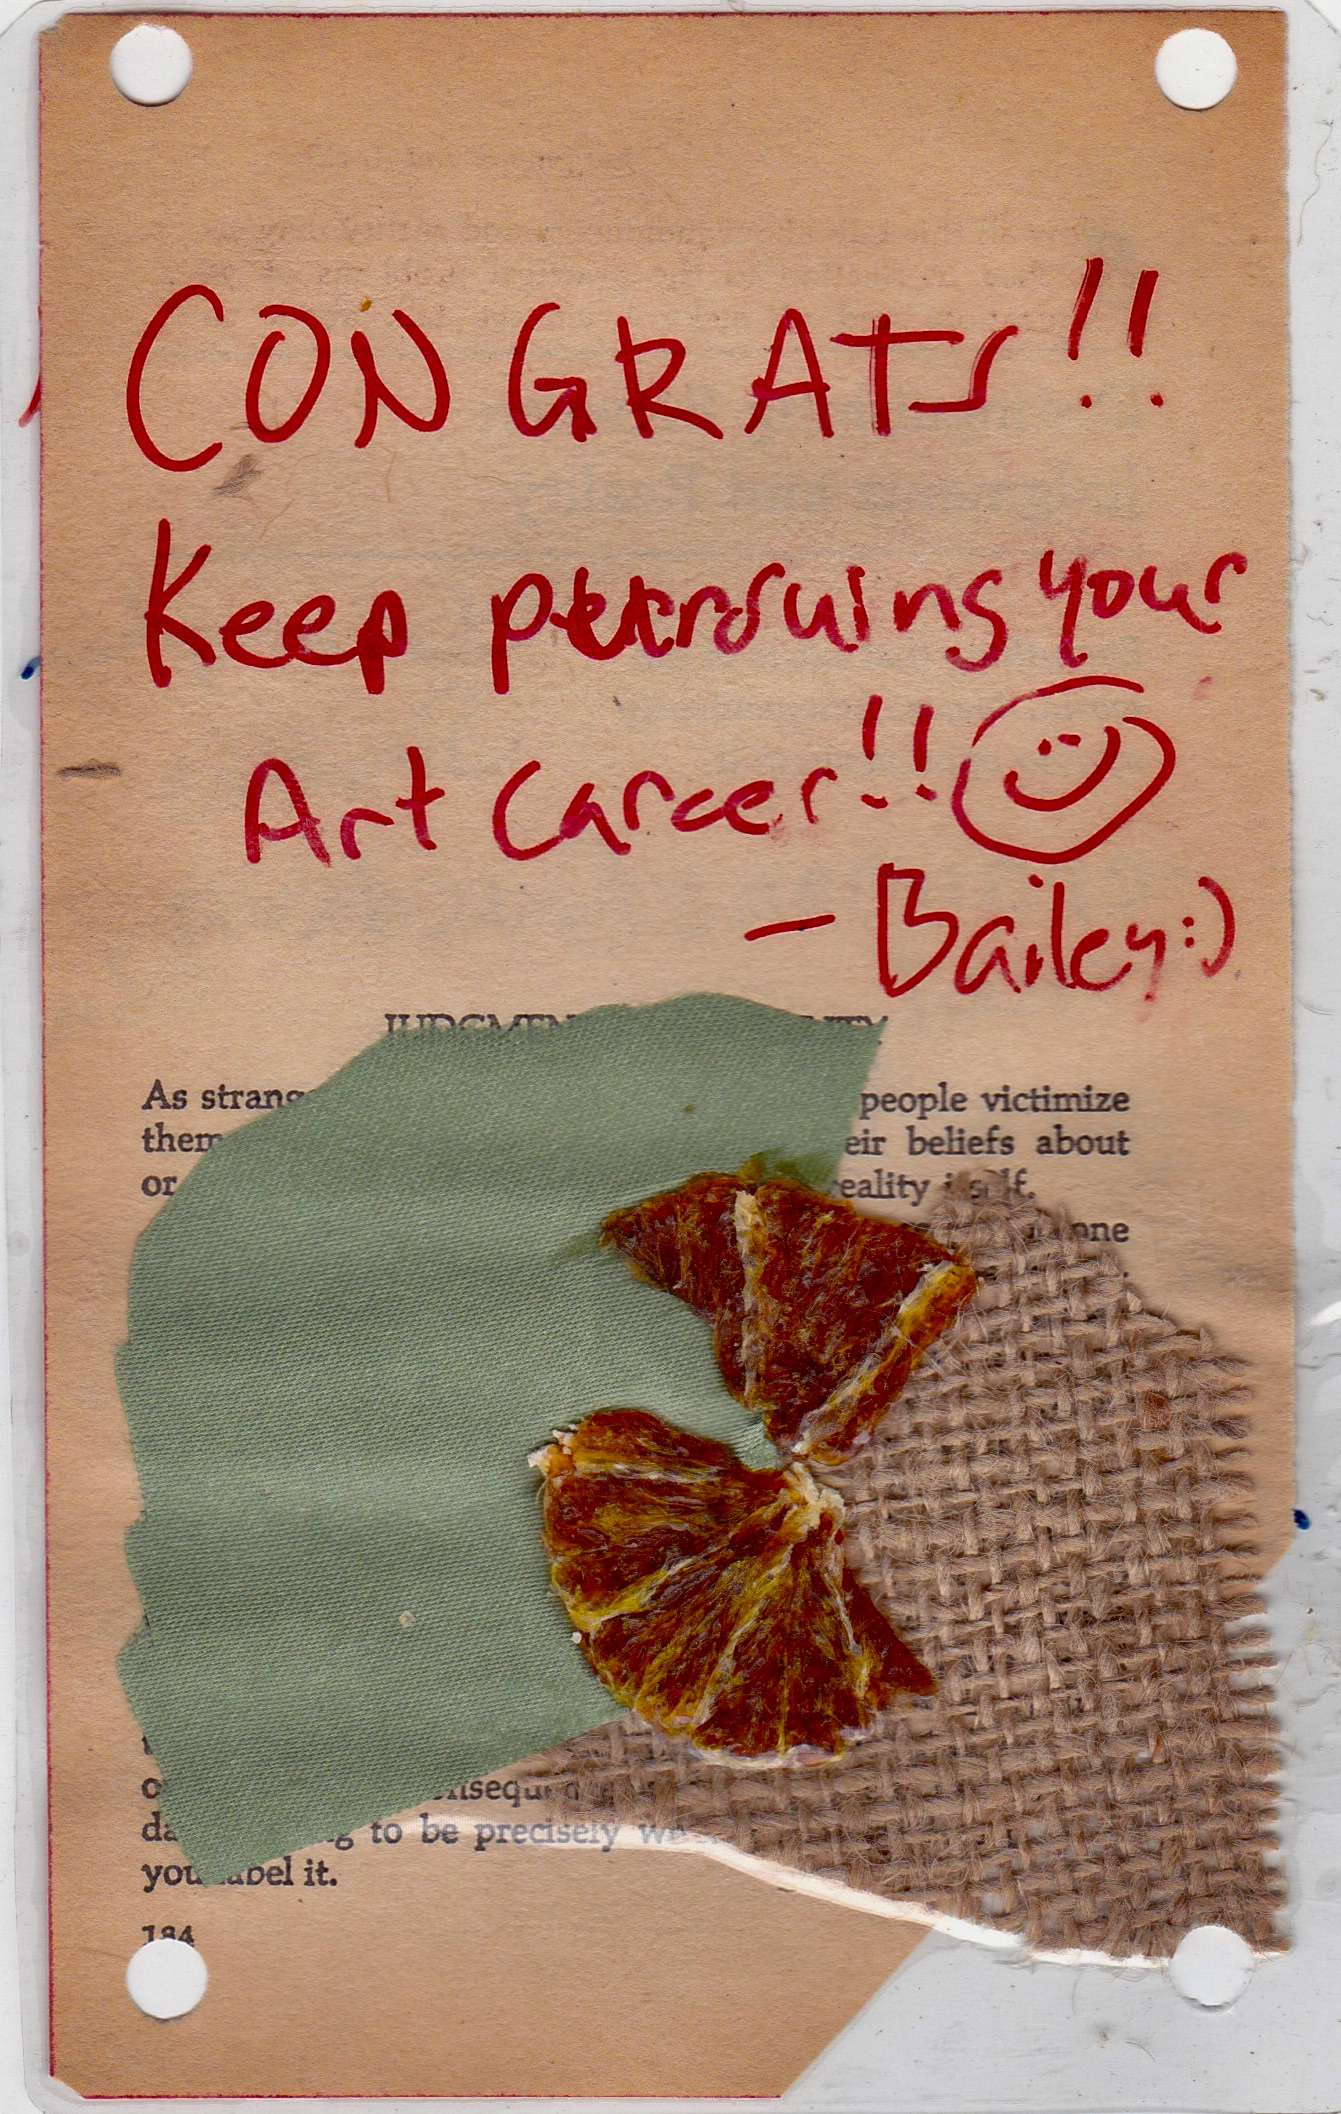 CONGRATS!!
Keep persuing your
Art Career!!
- Bailey :)
JUDGMEN
As strang people victimize
them eir beliefs about
or eality itself.
one
nsequ
da g to be precisely w
you label it.
184